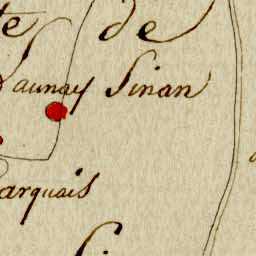 te de
Launay Sinan
arquais